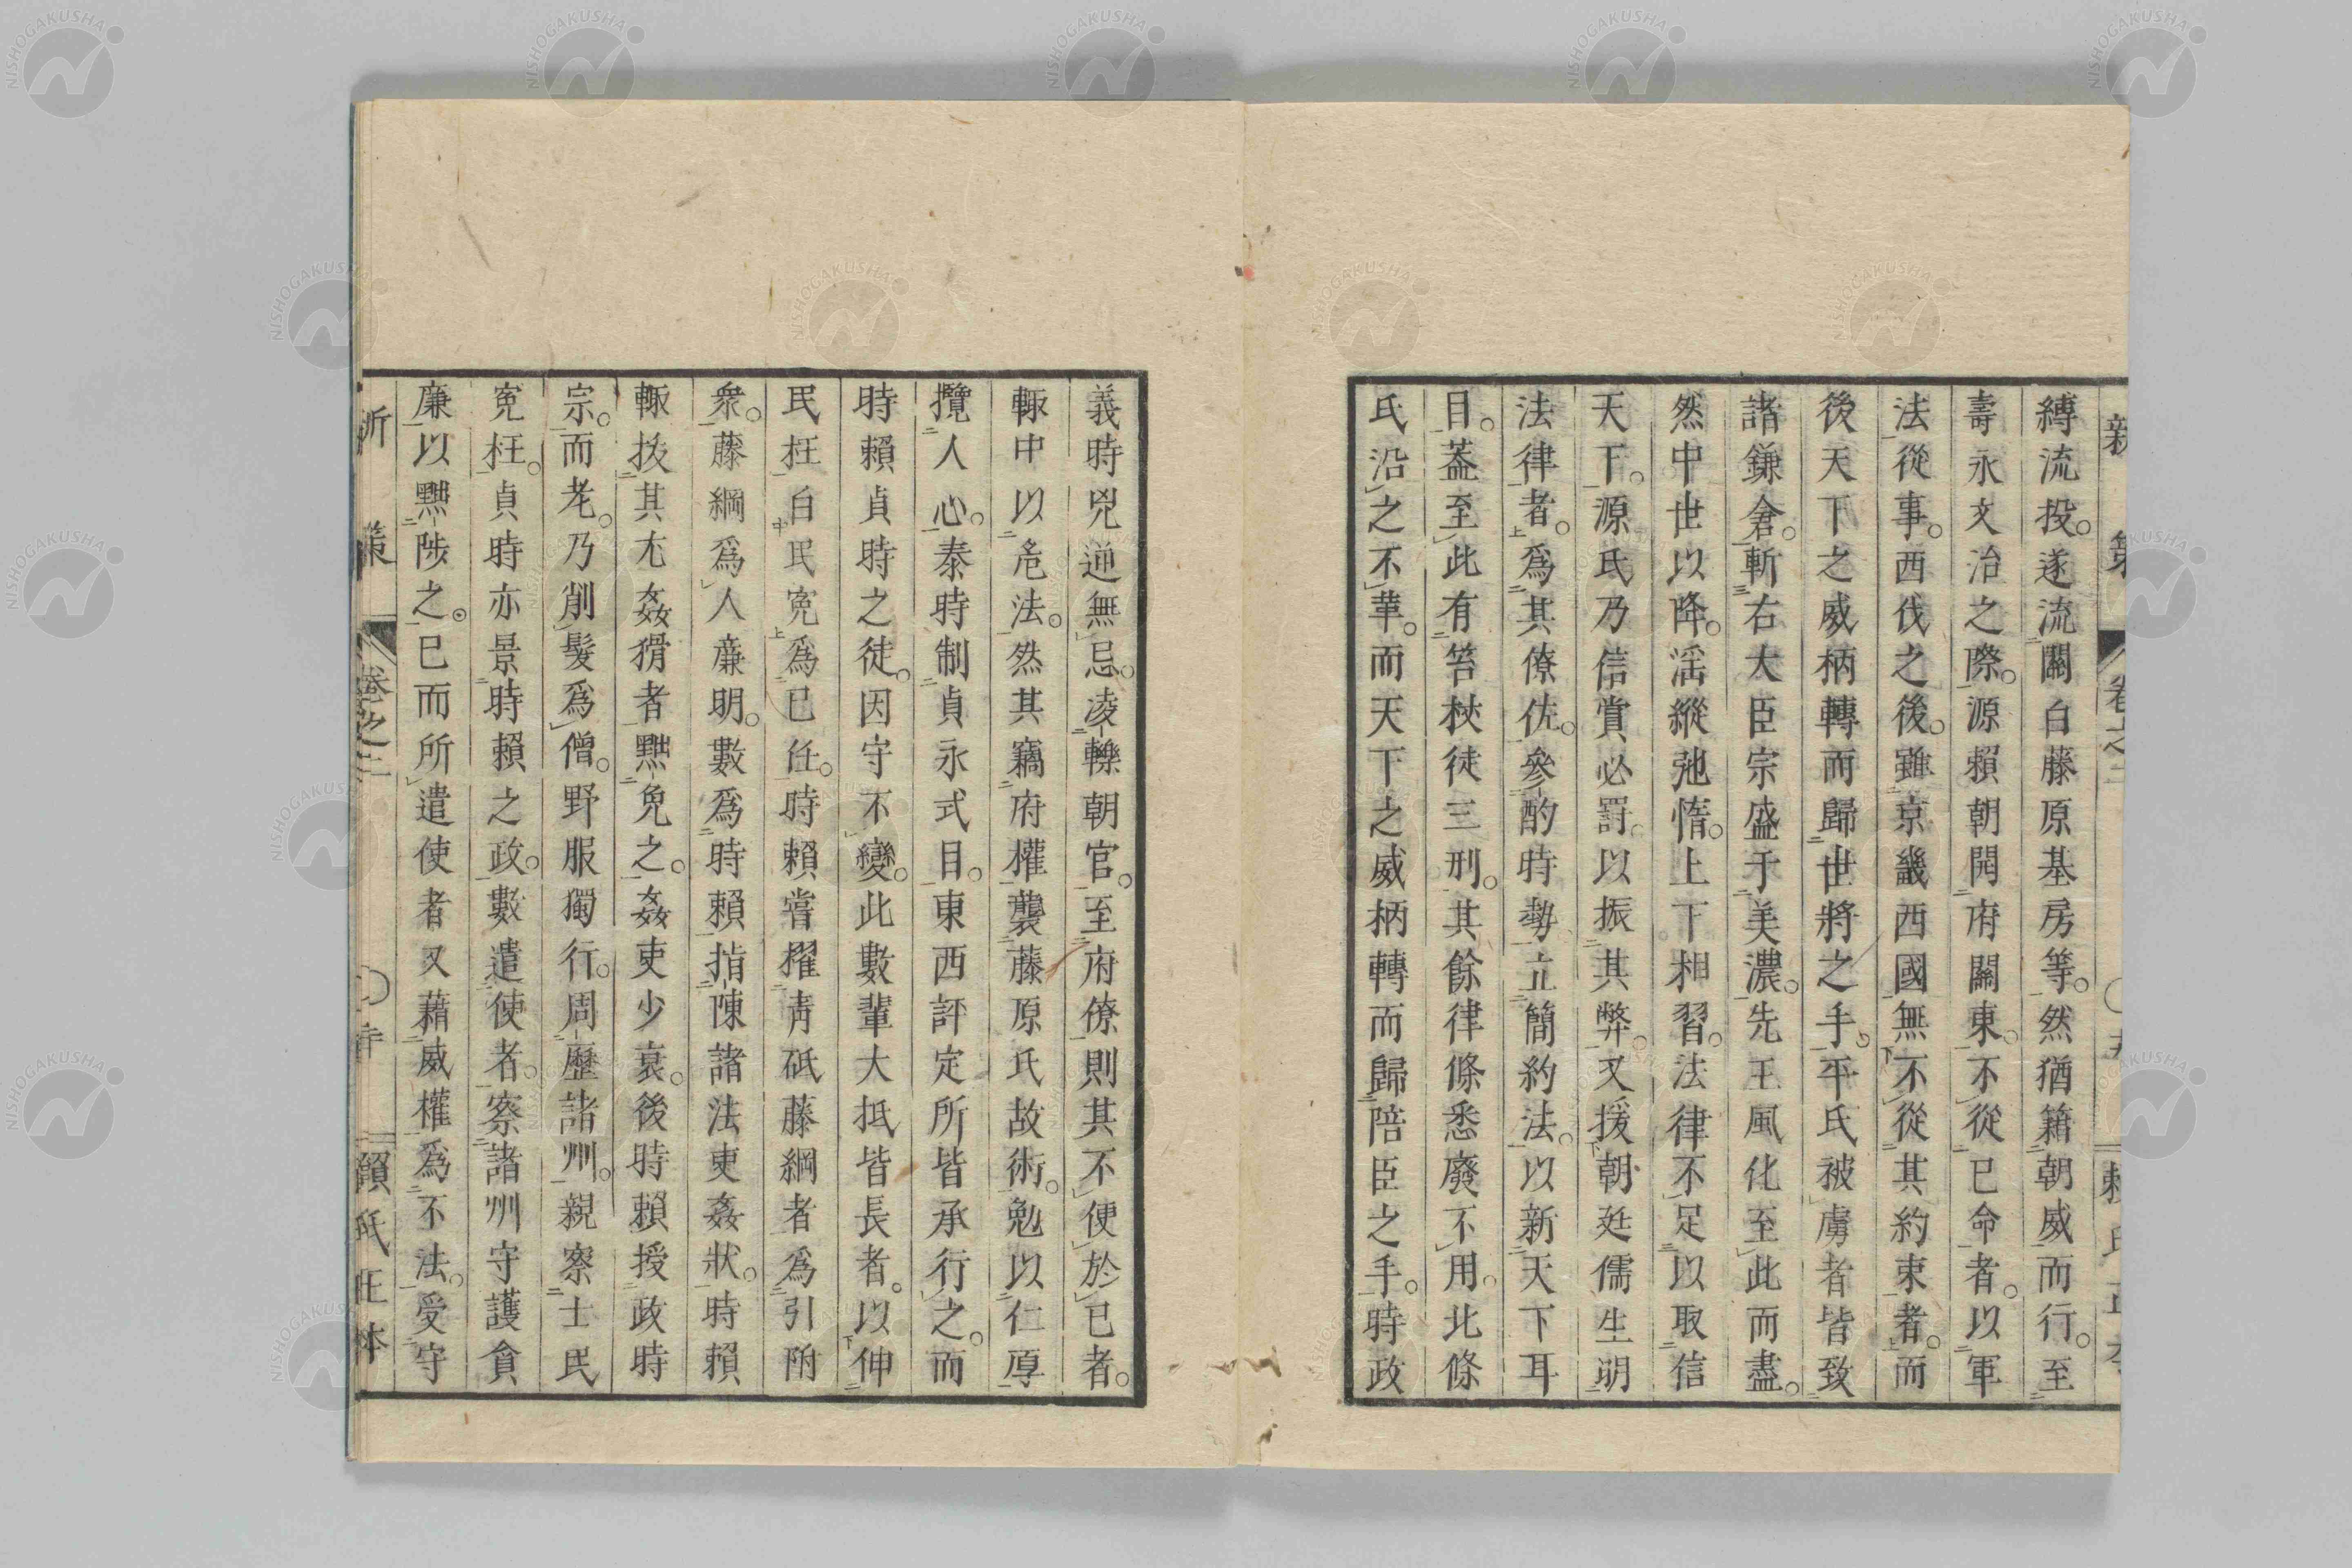 縛流投。遂流關白藤原基房等。然猶籍朝威而行。至
壽永文治之際。源賴朝開府關東。不從已命者。以軍
法從事。西伐之後。雖京畿西國無不從其約束者。而
後天下之威柄轉而歸世將之手。平氏被虜者皆致
諸鎌倉。斬右大臣宗盛于美濃。先王風化至此而盡。
然中世以降。滛縱弛惰。上下相習。法律不足以取信
天下。源氏乃信賞必罰。以振其弊。又援朝廷儒生明
法律者。爲其僚佐。參酌時勢立簡約法。以新天下耳
目。葢至此有笞杖徒三刑。其餘律條悉廢不用。北條
氏沿之不革。而天下之威柄轉而歸陪臣之手。時政
義時兇逆無忌。凌轢朝官。至府僚則其不便於已者。
輙中以危法。然其竊府權襲藤原氏故術。勉以仁厚
攬人心。泰時制貞永式目。東西評定所皆承行之。而
時賴貞時之徒。因守不變。此數輩大抵皆長者。以伸
民枉白民寃爲已任。時賴嘗擢靑砥藤綱者爲引附
衆。藤綱爲人廉明。數爲時賴指陳諸法吏姦狀。時賴
輙拔其尤姦猾者黜免之。姦吏少衰。後時賴授政時
宗。而老。乃削髮爲僧。野服獨行。周歷諸州。親察士民
寃枉。貞時亦景時賴之政。數遣使者。察諸州守護貪
廉以黜陟之。已而所遣使者又藉威權爲不法。受守
新策
卷之二
賴氏正本